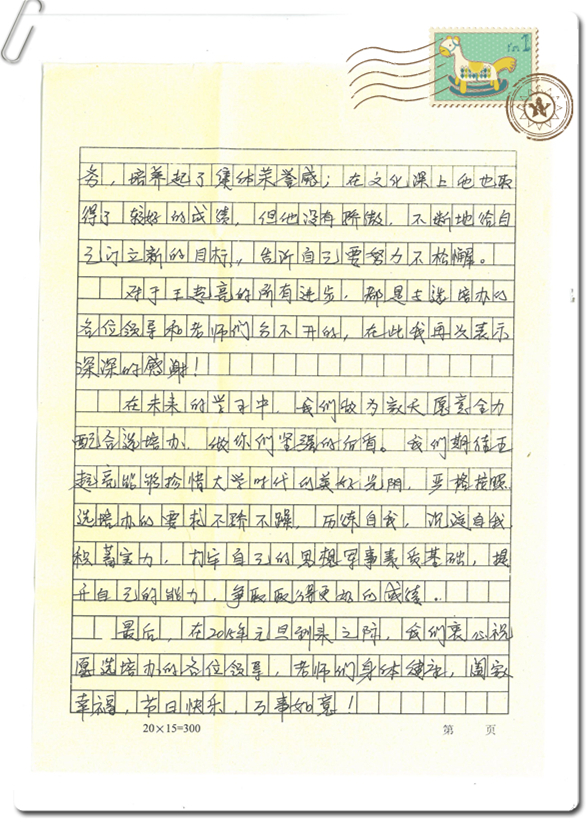 务，培养起了集体荣誉感；在文化课上他也取
得了较好的成绩，但他没有骄傲，不断地给自
己订立新的目标，告诉自己要努力不松懈。
对于王超亮的所有进步，都是与选培办的
各位领导和老师们分不开的，在此我再次表示
深深的感谢！
在未来的学习中，我们做为家长愿意全力
配合选培办，做你们坚强的后盾。我们期待王
超亮能够珍惜大学时代的美好光阴，严格按照
选培办的要求不骄不躁，历练自我，沉淀自我
积蓄实力，打牢自己的思想军事素质基础，提
升自己的能力，争取取得更好的成绩。
最后，在2015年元旦到来之际，我们衷心祝
愿选培办的各位领导，老师们身体健康，阖家
幸福，节日快乐，万事如意！
20×15=300
第 页